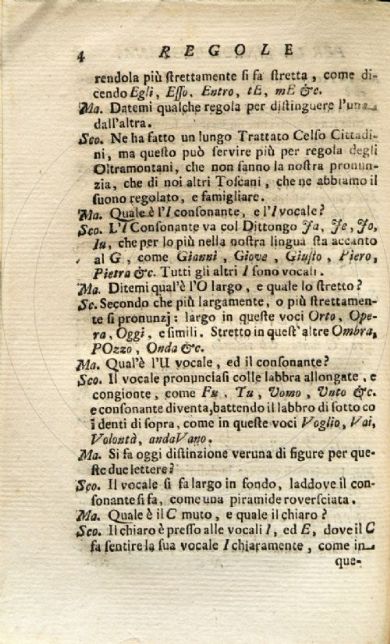 4 REGOLE
rendola più ſtrettamente ſi fa ſtretta, come di-
cendo Egli, Eſſo, Entro, tE, mE &c.
Ma. Datemi qualche regola per diſtinguere l'una
dall'altra.
Sco. Ne ha fatto un lungo Trattato Celſo Cittadi-
ni, ma queſto può ſervire più per regola degli
Oltramontani, che non ſanno la noſtra pronun-
zia, che di noi altri Toſcani, che ne abbiamo il
ſuono regolato, e famigliare.
Ma. Quale è l'I conſonante, e l'I vocale?
Sco. L'I Conſonante va col Dittongo Ja, Je, Jo,
Iu, che per lo più nella noſtra lingua ſta accanto
al G, come Gianni, Giove, Giuſto, Piero,
Pietra &c. Tutti gli altri I ſono vocali.
Ma. Ditemi qual'è l'O largo, e quale lo ſtretto?
Sc. Secondo che più largamente, o più ſtrettamen-
te ſi pronunzj: largo in queſte voci Orto, Ope-
ra, Oggi, e ſimili. Stretto in queſt'altre Ombra,
POzzo, Onda &c.
Ma. Qual'è l'U vocale, ed il conſonante?
Sco. Il vocale pronunciaſi colle labbra allongate, e
congionte, come Fu, Tu, Uomo, Unto &c.
e conſonante diventa, battendo il labbro di ſotto co
i denti di ſopra, come in queſte voci Voglio, Vai,
Volontà, andaVano.
Ma. Si fa oggi diſtinzione veruna di figure per que-
ſte due lettere?
Sco. Il vocale ſi fa largo in fondo, laddove il con-
ſonante ſi fa, come una piramide roverſciata.
Ma. Quale è il C muto, e quale il chiaro?
Sco. Il chiaro è preſſo alle vocali I, ed E, dove il C
fa ſentire la ſua vocale I chiaramente, come in
que-